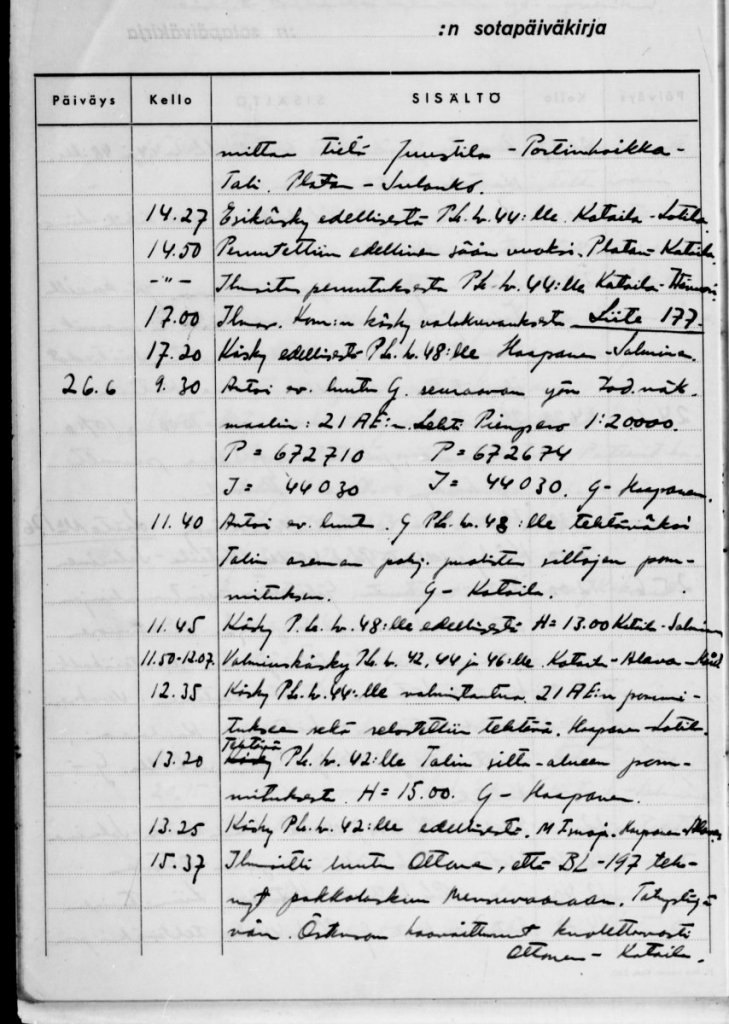 :n sotapäiväkirja
Päiväys Kello SISÄLTÖ
mittaa tietä Juustila - Portinhoikka -
Tali. Platan - Sulanko.
14.27 Esikäsky edellisestä P.Le.Lv.44:lle. Kataila -
14.50 Peruutettiin edellinen sään vuoksi. Platan - Kataila.
- " - Ilmoitus peruutuksesta P.Le.Lv.44:lle Kataila -
17.00 Ilmav. Kom:n käsky valokuvauksesta Liite 177.
17.20 Käsky edellisestä P.Le.Lv.48:lle Haapanen - Salminen.
26.6 9.30 Antoi ev. luutn G. seuraavan yön tod. näk.
maalin: 21 AE:n. Lehti Pienpero 1:20000.
P = 672710 P = 672674
I = 44030 I = 44030. G - Haapanen.
11.40 Antoi ev. luutn. G P.Le.Lv.48:lle tehtäväksi
Talin aseman pohj. puolisten siltojen pom-
mituksen. G - Kataila.
11.45 Käsky P.Le.Lv.48:lle edellisestä H=13.00 Kataila - Salminen
11.50-12.07. Valmiuskäsky P.Le.Lv. 42, 44 ja 46:lle. Kataila - Alava -
12.35 Käsky P.Le.Lv.44:lle valmistautua 21 AE:n pommi-
tukseen sekä selostettiin tehtävä. Haapanen -
Tehtävä
13.20 Käsky P.Le.Lv.42:lle Talin silta-alueen pom-
mituksesta. H=15.00. G - Haapanen.
13.25 Käsky P.Le.Lv.42:lle edellisestä. Haapanen - Alava.
15.37 Ilmoitti luutn Ottonen, että BL-197 teh-
nyt pakkolaskun Mensuvaaraan. Tähystäjä
vän. Östman haavoittunut kuolettavasti
Ottonen - Kataila.